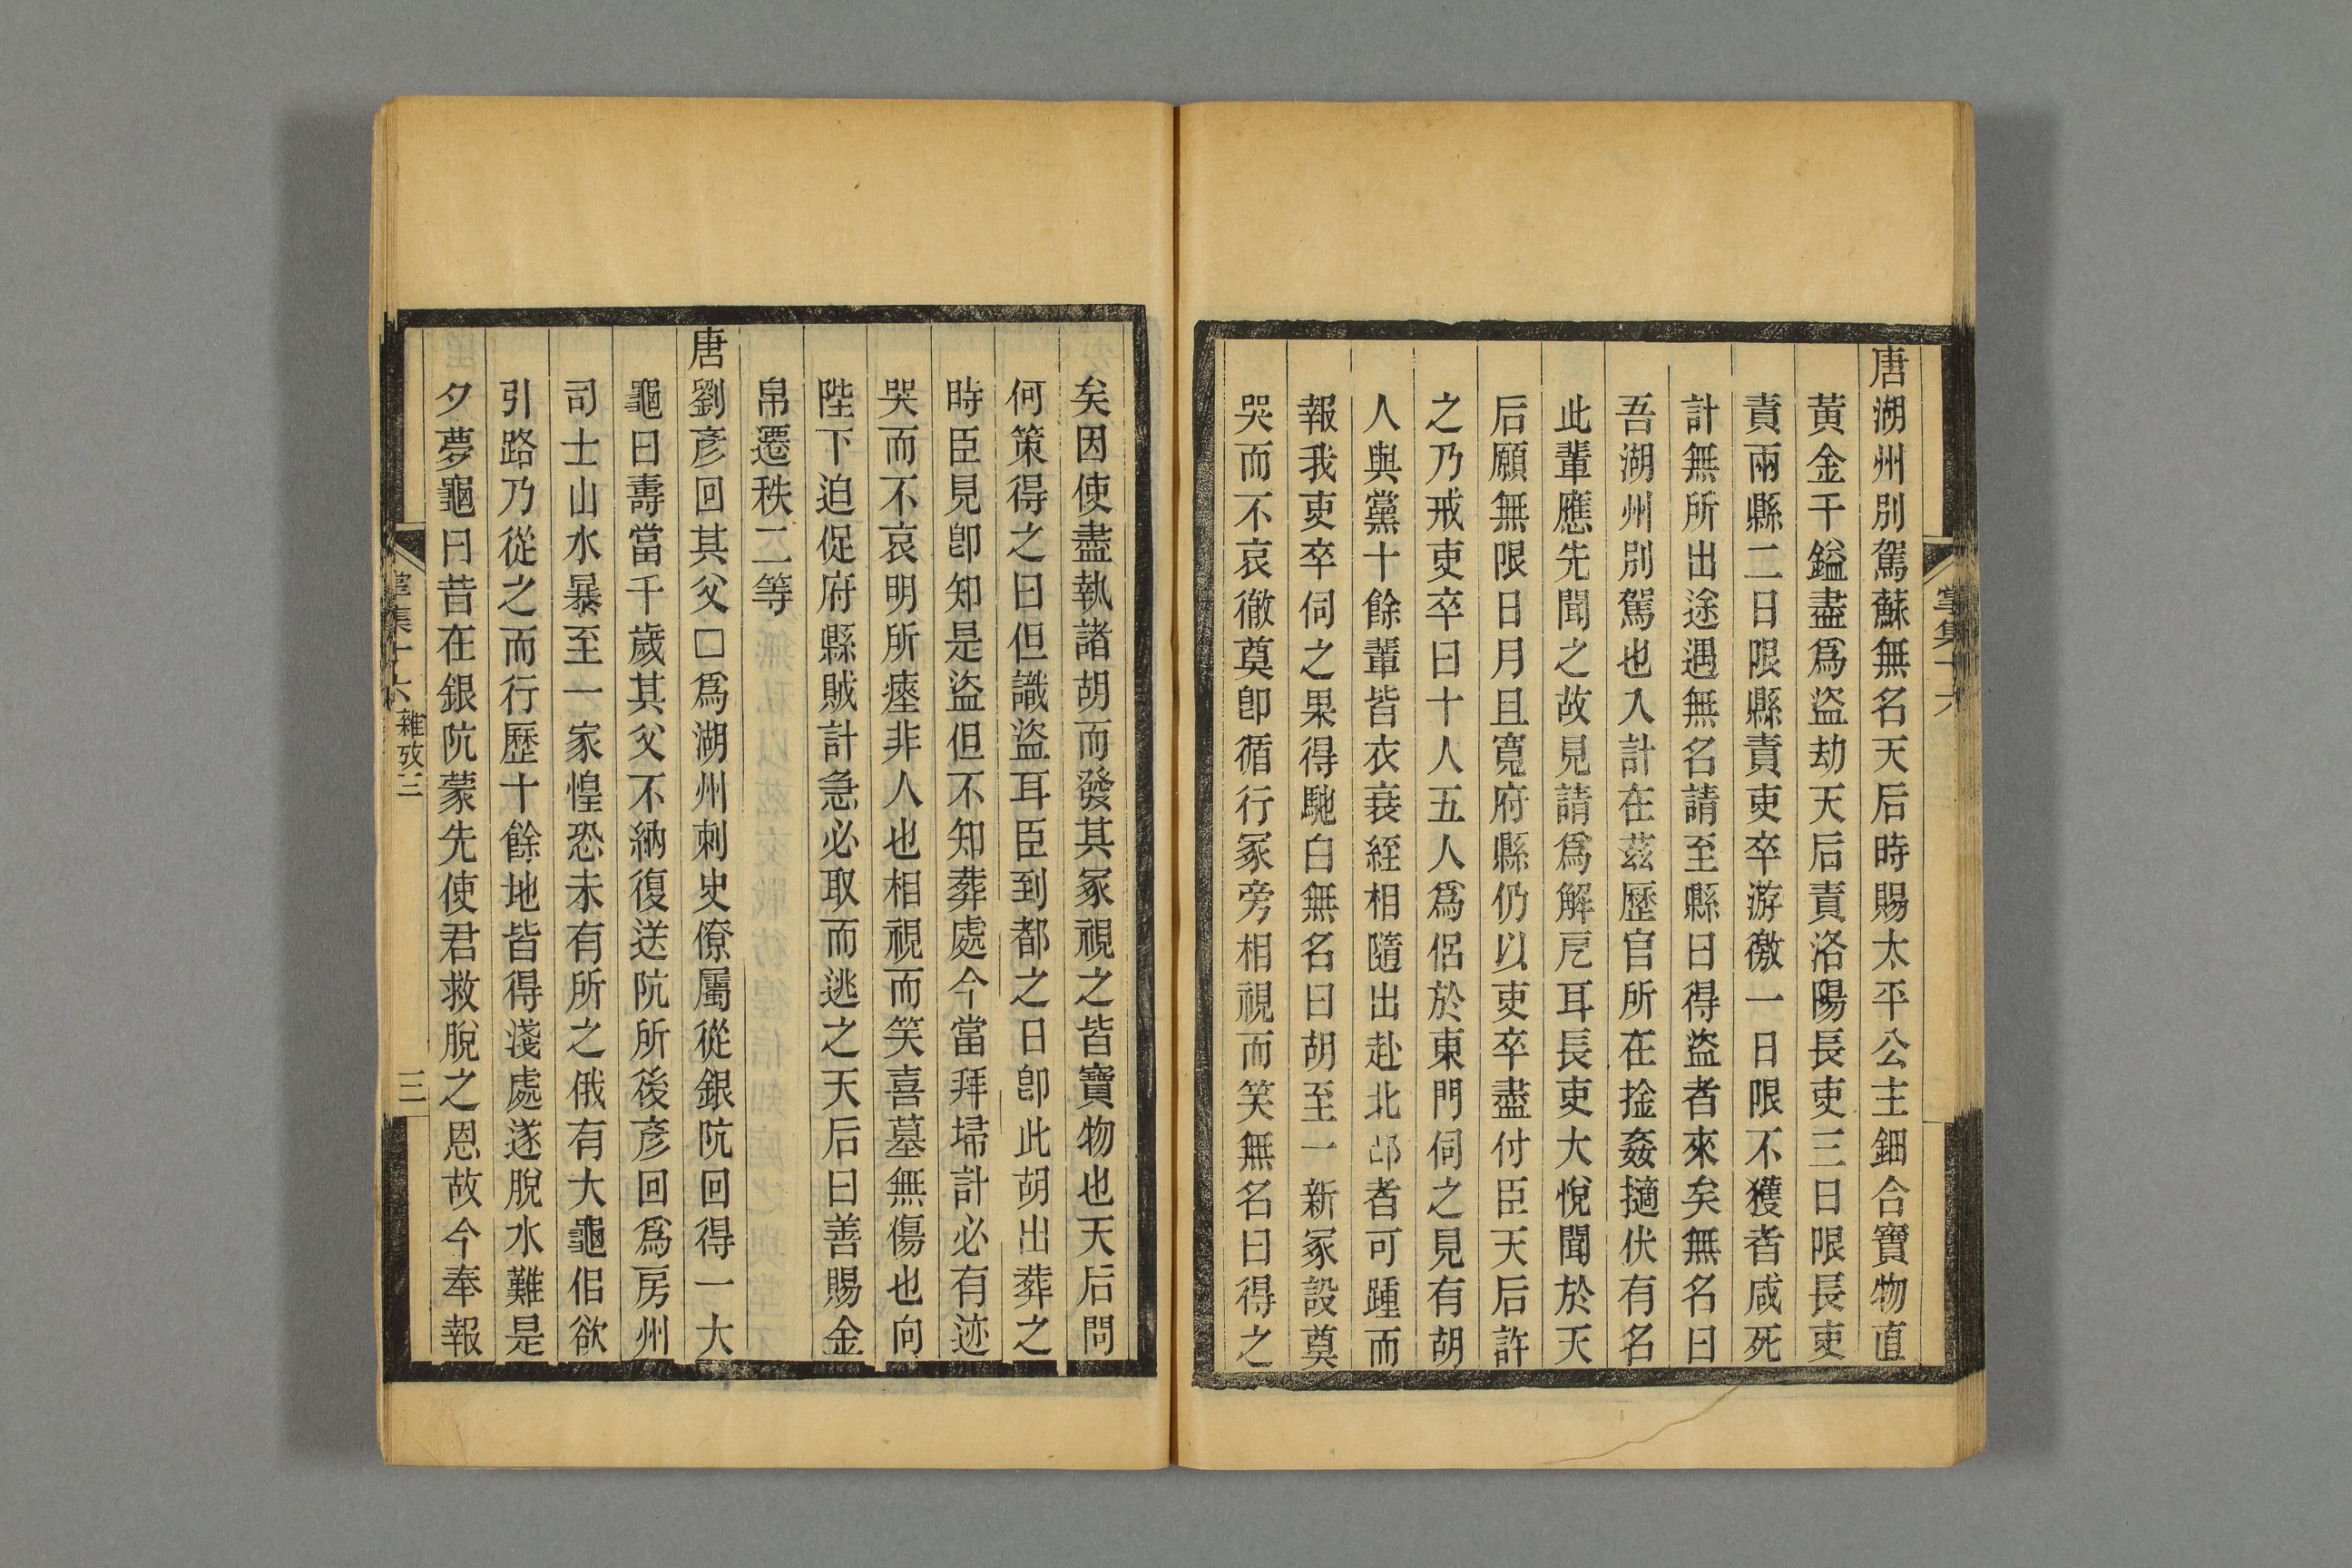 唐湖州別駕蘇無名天后時賜太平公主鈿合寶物直
黃金千鎰盡爲盜劫天后責洛陽長吏三日限長吏
責兩縣二日限縣責吏卒游徼一日限不獲者咸死
計無所出途遇無名請至縣曰得盜者來矣無名曰
吾湖州別駕也入計在茲歷官所在捦姦擿伏有名
此輩應先聞之故見請爲解戹耳長吏大悅聞於天
后願無限日月且寬府縣仍以吏卒盡付臣天后許
之乃戒吏卒曰十人五人爲侶於東門伺之見有胡
人與黨十餘輩皆衣衰絰相隨出赴北邙者可踵而
報我吏卒伺之果得馳白無名曰胡至一新冢設奠
哭而不哀徹奠卽循行冢旁相視而笑無名曰得之
矣因使盡執諸胡而發其冢視之皆寶物也天后問
何策得之曰但識盜耳臣到都之日卽此胡出葬之
時臣見卽知是盜但不知葬處今當拜埽計必有迹
哭而不哀明所瘞非人也相視而笑喜墓無傷也向
陛下迫促府縣賊計急必取而逃之天后曰善賜金
帛遷秩二等
唐劉彥回其父□爲湖州刺史僚屬從銀阬回得一大
龜曰壽當千歲其父不納復送阬所後彥回爲房州
司士山水暴至一家惶恐未有所之俄有大龜佀欲
引路乃從之而行歷十餘地皆得淺處遂脫水難是
夕夢龜曰昔在銀阬蒙先使君救脫之恩故今奉報
掌集十六 雜攷三
三